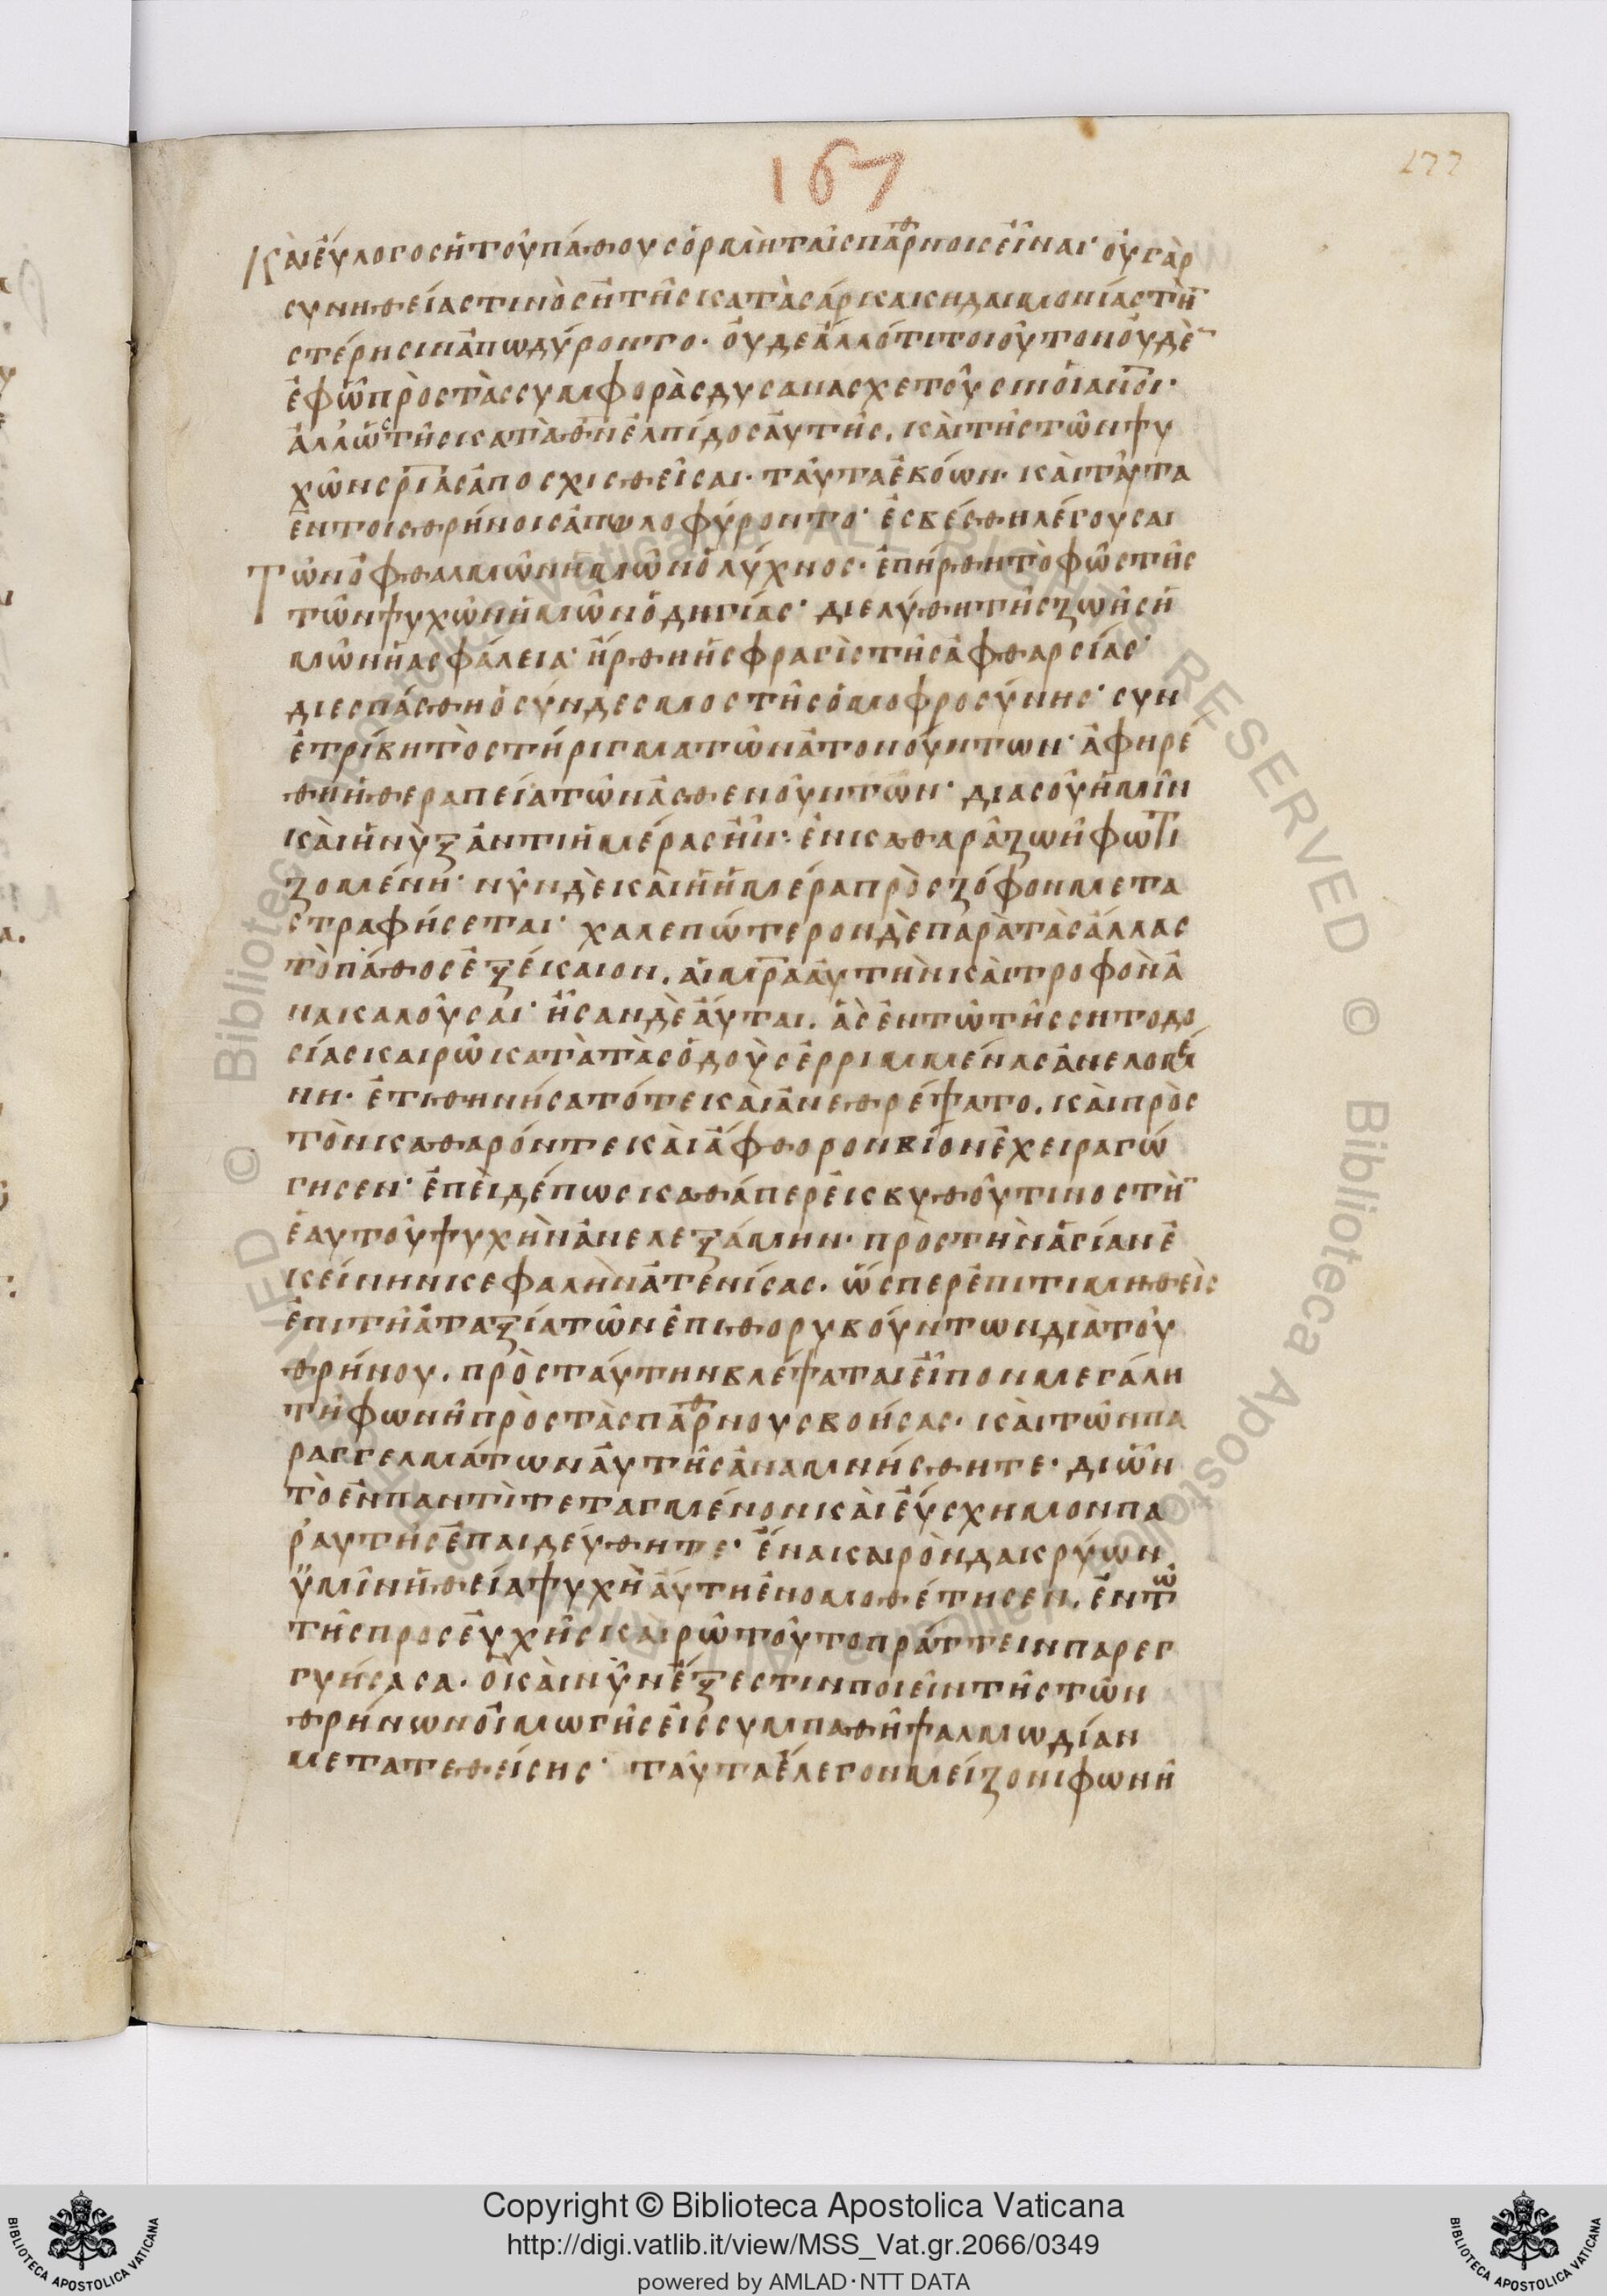 167
177
Καὶ εὔλογος ἡ τοῦ πάθους ὁρμὴ ταῖς πάρθνοις εἶναι· οὐ γὰρ
συνηθείας τινὸς ἢ τῆς κατὰ σάρκα κηδαιμονίας τὴν
στέρησιν ἀπωδύροντο· οὐδε ἄλλό τι τοιοῦτον οὐδὲν
ἐφ ὧ πρὸς τὰς συμφορὰς δυσανασχετοῦσιν οἱ ανοι·
ἀλλ ὡς τῆς κατὰ θν ἐλπίδος αὐτῆς, καὶ τῆς τῶν ψυ
χῶν σριας ἀποσχισθεῖσαι· ταῦτα ἐβόων· καὶ ταῦτα
ἐν τοις θρήνοις ἀπωλοφύροντο· ἐσβέσθη λέγουσαι
Τῶν ὀφθαλμῶν ἡμῶν ὁ λύχνος· ἐπήρθη τὸ φῶς τῆς
τῶν ψυχῶν ἡμῶν ὁδηγίας· διελύθη τῆς ζωῆς ἡ
μῶν ἡ ασφάλεια· ἤρθη ἡ σφραγὶς τῆς ἀφθαρσίας·
διεσπάσθη ὁ σύνδεσμος τῆς ὁμοφροσύνης· συν
ἐτρίβη τὸ στήριγμα τῶν ἀτονούντων· ἀφηρέ
θη ἡ θεραπεία τῶν ἀσθενούντων· δια σοῦ ἡμῖν
καὶ ἡ νὺξ ἀντι ἡμέρας ἦν· ἐν καθαρᾶ ζωῆ φωτι
ζομένη· νῦν δὲ καὶ ἡ ἡμέρα πρὸς ζόφον μετα
στραφήσεται· χαλεπώτερον δὲ παρὰ τὰς ἄλλας
τὸ πάθος ἐξέκαιον, αἱ μρα αὐτὴν καὶ τροφὸν ἀ
νακαλοῦσαι· ἦσαν δὲ αὗται, ἃς ἐν τῶ τῆς σητοδο
σίας καιρῶ κατὰ τὰς ὁδοὺς ἐρριμμένας ἀνελομέ
νη· ἐτιθηνήσατό τε καὶ ἀνεθρέψατο, καὶ πρὸς
τὸν καθαρόν τε καὶ ἄφθορον βίον ἐχειραγώ
γησεν· ἐπεὶ δέ πως καθάπερ ἐκ βυθοῦ τινος τὴν
ἐαυτοῦ ψυχὴν ἀνελεξάμην· πρὸς τὴν ἁγίαν ἐ
κείνην κεφαλὴν ἀτενίσας. ὥσπερ ἐπιτιμηθεὶς
ἐπι τῆ ἀταξία τῶν ἐπιθορυβούντων διὰ τοῦ
θρήνου, πρὸς ταύτην βλέψατε εἶπον μεγάλη
τῆ φωνῆ πρὸς τὰς πάρθνους βοήσας· καὶ τῶν πα
ραγγελμάτων αὐτῆς ἀναμνήσθητε· δι ὧν
τὸ ἐν παντὶ τεταγμένον καὶ εὔσχημον πα
ρ αυτῆς ἐπαιδεύθητε· ἕνα καιρὸν δακρύων
ὑμῖν ἡ θεία ψυχὴ αὕτη ἐνομοθέτησεν, ἐν τῶ
τῆς προσευχῆς καιρῶ τοῦτο πράττειν παρεγ
γυήσασα· ὃ καὶ νῦν ἔξεστιν ποιεῖν τῆς τῶν
θρήνων οἰμωγῆς εἰς συμπαθῆ ψαλμωδίαν
μετατεθείσης· ταῦτα ἔλεγον μείζονι φωνῆ
Copyright © Biblioteca Apostolica Vaticana
http://digi.vatlib.it/view/MSS_Vat.gr.2066/0349
powered by AMLAD·NTT DATA